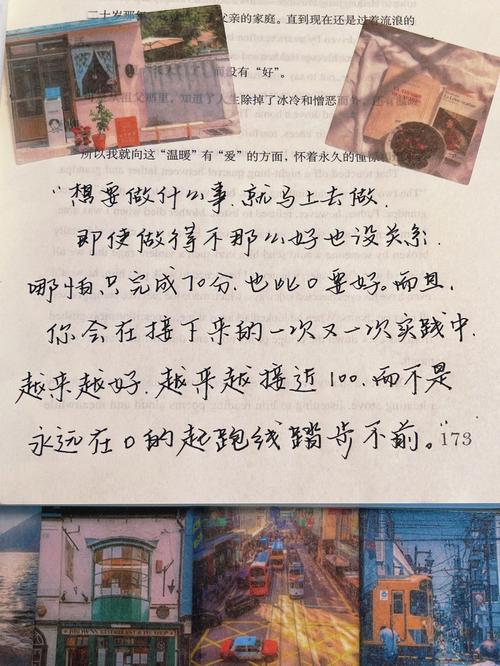 二十岁那年
父亲的家庭。直到现在还是过着流浪的
而没有“好”。
祖父那里，知道了人生除掉了冰冷和憎恶而外，还有温暖
所以我就向这“温暖”有“爱”的方面，怀着永久的憧憬
“想要做什么事，就马上去做，
即使做得不那么好也没关系，
哪怕只完成70分，也比0要好。而且，
你会在接下来的一次又一次实践中，
越来越好，越来越接近100，而不是
永远在0的起跑线踏步不前。”
173